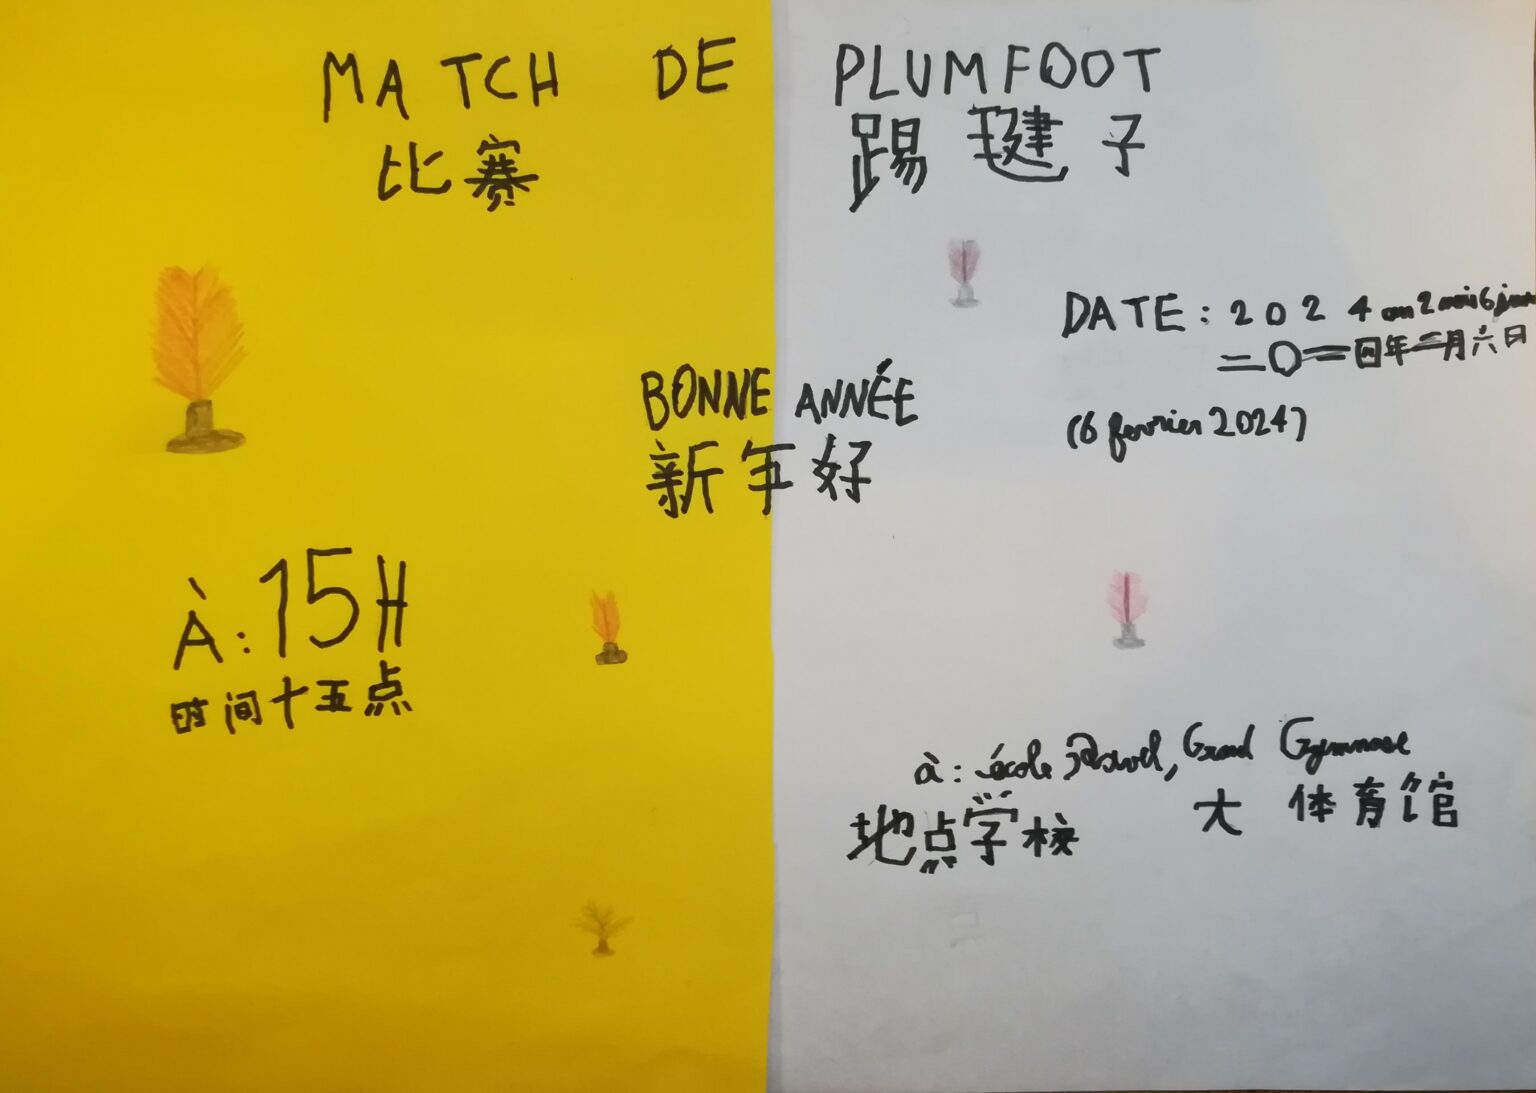 MATCH DE PLUMFOOT
比赛 踢毽子
DATE: 2024 an 2 mois 6 jours
二〇二四年二月六日
(6 fevrier 2024)
BONNE ANNÉE
新年好
À: 15H
时间十五点
à: école Ravel, Grand Gymnase
地点学校 大体育馆